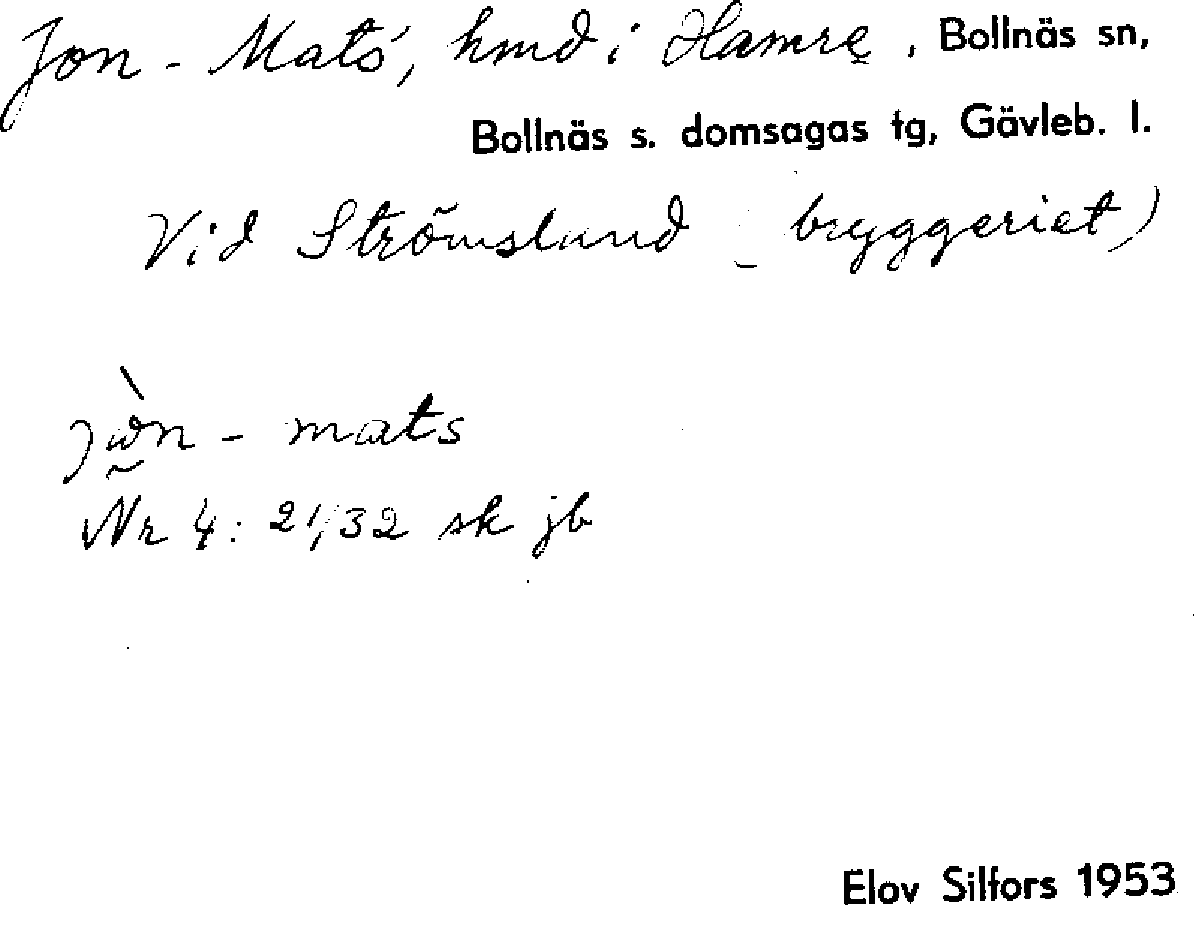 Jon-Mats', hmd i Hamre, Bollnäs sn,
Bollnäs s. domsagas tg, Gävleb. l.
Vid Strömslund (bryggeriet)
jὼn-mats
Nr 4:21,32 sk jb
Elov Silfors 1953